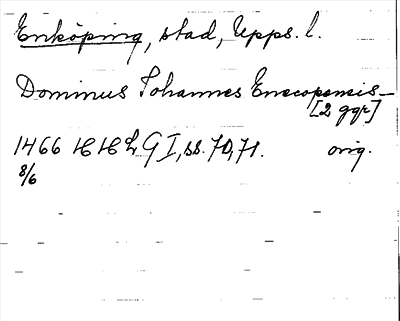 Enköping, stad, Upps. l.
Dominus Johannes Enecopensis
[2 ggr]
1466 HHLG I, ss. 70, 71. orig.
8/6